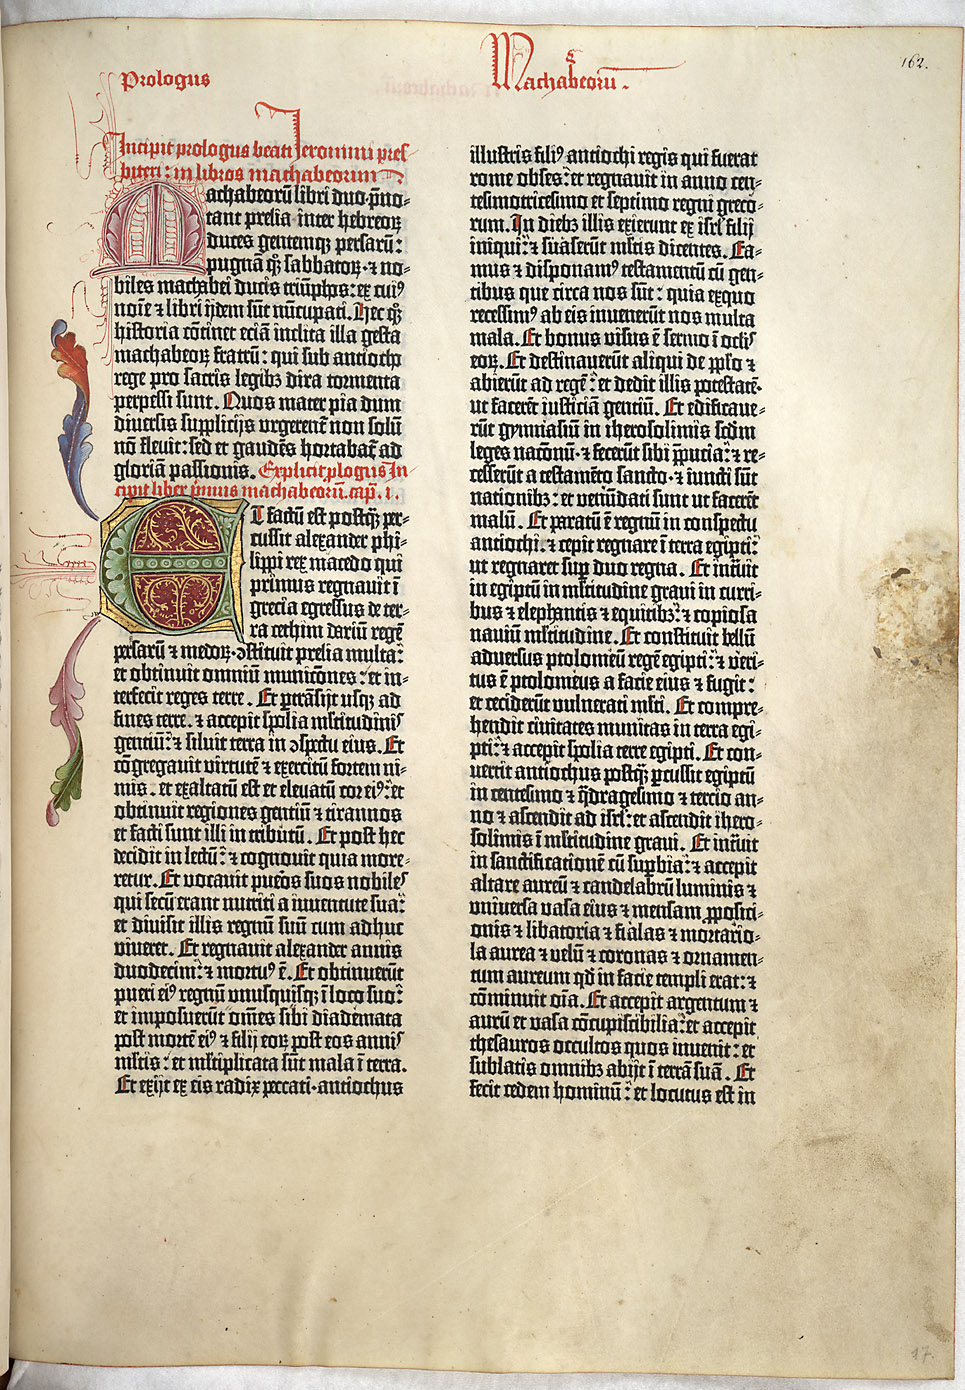 Prologus
Machabeorū.
162.
Incipit prologus beati Jeronimi pres
biteri: in libros machabeorum
Machabeorū libri duo p̄no-
tant prelia inter hebreoꝝ
duces gentemqꝫ persarū:
pugnā qꝫ̄ sabbatoꝝ. ⁊ no-
biles machabei ducis triūphos: ex cuiꝰ
noīe ⁊ libri ijdem sūt nūcupati. Hec qꝫ̄
historia cōtinet eciā inclita illa gesta
machabeoꝝ fratrū: qui sub antiocho
rege pro sacris legibꝫ dira tormenta
perpessi sunt. Quos mater pia dum
diuersis supplicijs vrgerent᷑ non solū
nō fleuit: sed et gaudēs hortabat᷑ ad
gloriā passionis. Explicit ꝓlogus In-
cipit liber p̄mus machabeorū. cap̄. i.
Et factū est postqꝫ̄ per-
cussit alexander phi-
lippi rex macedo qui
primus regnauit ī
grecia egressus de ter-
ra cethim dariū regē
persarū ⁊ medoꝝ. ꝯstituit prelia multa:
et obtinuit omniū municōnes: et in-
terfecit reges terre. Et ꝑtrāsijt usqꝫ ad
fines terre. ⁊ accepit spolia mltitudinis
gentiū: ⁊ siluit terra in ꝯspectu eius. Et
cōgregauit virtutē ⁊ exercitū fortem ni-
mis. et exaltatū est et eleuatū cor eiꝰ: et
obtinuit regiones gentiū ⁊ tirannos
et facti sunt illi in tributū. Et post hec
decidit in lectū: ⁊ cognouit quia more-
retur. Et vocauit pueros suos nobiles
qui secū erant nutriti a iuuentute sua:
et diuisit illis regnū suū cum adhuc
viueret. Et regnauit alexander annis
duodecim: ⁊ mortuꝰ ē. Et obtinuerūt
pueri eiꝰ regnū vnusquisqꝫ ī loco suo:
et imposuerūt om̄es sibi diademata
post mortē eiꝰ ⁊ filij eoꝝ post eos annis
mltis: et mltiplicata sūt mala ī terra.
Et exijt ex eis radix peccati. antiochus
illustris filiꝰ antiochi regis qui fuerat
rome obses: et regnauit in anno cen-
tesimotricesimo et septimo regni greco-
rum. In diebꝫ illis exierunt ex isrl̄ filij
iniqui: ⁊ suaserūt mltis dicentes. Ea-
mus ⁊ disponamꝰ testamentū cū gen-
tibus que circa nos sūt: quia exquo
recessimꝰ ab eis inuenerūt nos multa
mala. Et bonus visus ē sermo ī oclis
eoꝝ. Et destinauerūt aliqui de pplo ⁊
abierūt ad regē: et dedit illis potestatē.
ut facerēt iusticiā gentiū. Et edificaue-
rūt gymnasiū in iherosolimis scdm
leges nacōnū. ⁊ fecerūt sibi p̄pucia: ⁊ re-
cesserūt a testamēto sancto. ⁊ iuncti sūt
nationibꝫ: et venūdati sunt ut facerēt
malū. Et paratū ē regnū in conspectu
antiochi. ⁊ cepit regnare ī terra egipti:
ut regnaret suꝑ duo regna. Et int̄uit
in egiptū in mltitudine graui in curri-
bus ⁊ elephantis ⁊ equitibꝫ: ⁊ copiosa
nauiū mltitudine. Et constituit bellū
aduersus ptolomeū regē egipti: ⁊ veri-
tus ē ptolomeus a facie eius ⁊ fugit:
et ceciderūt vulnerati mlti. Et compre-
hendit ciuitates munitas in terra egi-
pti: ⁊ accepit spolia terre egipti. Et con-
uertit antiochus postqꝫ̄ ꝑcussit egiptū
in centesimo ⁊ q̄dragesimo ⁊ tercio an-
no ⁊ ascendit ad isrl̄: et ascendit ihero-
solimis ī mltitudine graui. Et int̄uit
in sanctificationē cū suꝑbia: ⁊ accepit
altare aureū ⁊ candelabrū luminis ⁊
vniuersa vasa eius ⁊ mensam ꝓpositi-
onis ⁊ libatoria ⁊ fialas ⁊ mortario-
la aurea ⁊ velū ⁊ coronas ⁊ ornamen-
tum aureum qd̄ in facie templi erat: ⁊
cōminuit oīa. Et accepit argentum ⁊
aurū et vasa cōcupiscibilia: et accepit
thesauros occultos quos inuenit: et
sublatis omnibꝫ abijt ī terrā suā. Et
fecit cedem hominū: et locutus est in
17.